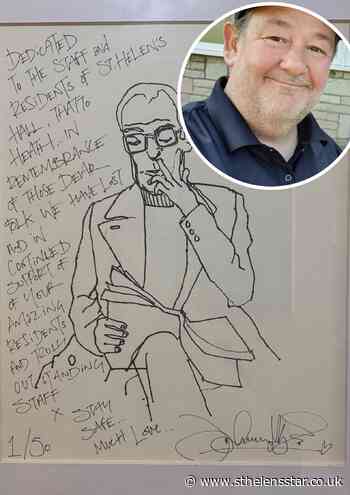 DEDICATED
TO THE STAFF AND
RESIDENTS OF ST. HELEN'S
HALL THATTO
HEATH... IN
REMEMBRANCE
OF THOSE DEAR
FOLK WE HAVE LOST
AND IN
CONTINUED
SUPPORT OF
OF YOUR
AMAZING
RESIDENTS
AND TRULY
OUTSTANDING
STAFF
X STAY
SAFE..
MUCH LOVE...
1/50
www.sthelensstar.co.uk